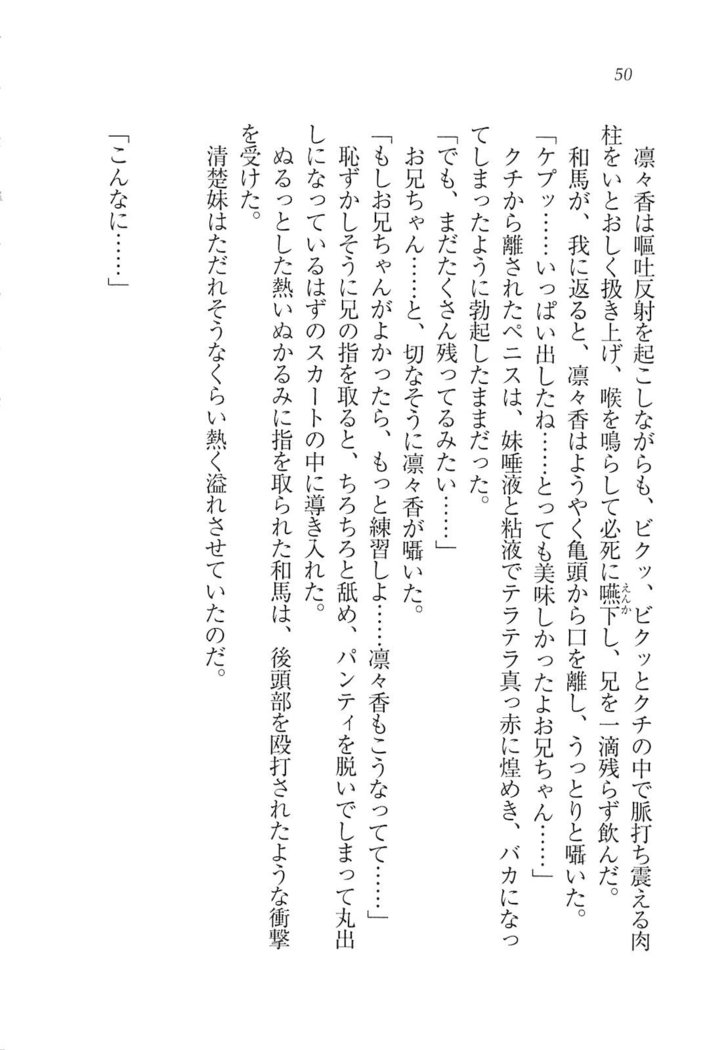 50
凛々香は嘔吐反射を起こしながらも、ビクッ、ビクッとクチの中で脈打ち震える肉
柱をいとおしく扱き上げ、喉を鳴らして必死に嚥下し、兄を一滴残らず飲んだ。
えんか
和馬が、我に返ると、凛々香はようやく亀頭から口を離し、うっとりと囁いた。
「ケプッ……いっぱい出したね……とっても美味しかったよお兄ちゃん……」
クチから離されたペニスは、妹唾液と粘液でテラテラ真っ赤に煌めき、バカになっ
てしまったように勃起したままだった。
「でも、まだたくさん残ってるみたい……」
お兄ちゃん……と、切なそうに凛々香が囁いた。
「もしお兄ちゃんがよかったら、もっと練習しよ……凛々香もこうなってて……」
恥ずかしそうに兄の指を取ると、ちろちろと舐め、パンティを脱いでしまって丸出
しになっているはずのスカートの中に導き入れた。
ぬるっとした熱いぬかるみに指を取られた和馬は、後頭部を殴打されたような衝撃
を受けた。
清楚妹はただれそうなくらい熱く溢れさせていたのだ。
「こんなに……」